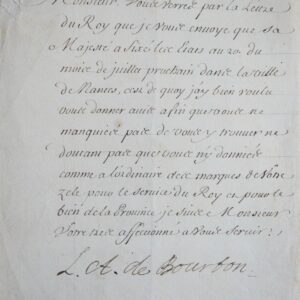 Monsieur, Vous verrez par la Lettre
du Roy que je vous envoye que sa
Majesté a fixé les Etats au 20. du
mois de juillet prochain dans la ville
de Nantes, c'est de quoy j'ay bien voulu
vous donner avis afin que vous ne
manquiés pas de vous y trouver ne
doutant pas que vous n'y donniés
comme a l'ordinaire des marques de vôtre
zele pour le service du Roy et pour le
bien de la Province je suis Monsieur
Votre tres affectionné a Vous servir:
L. A. de Bourbon